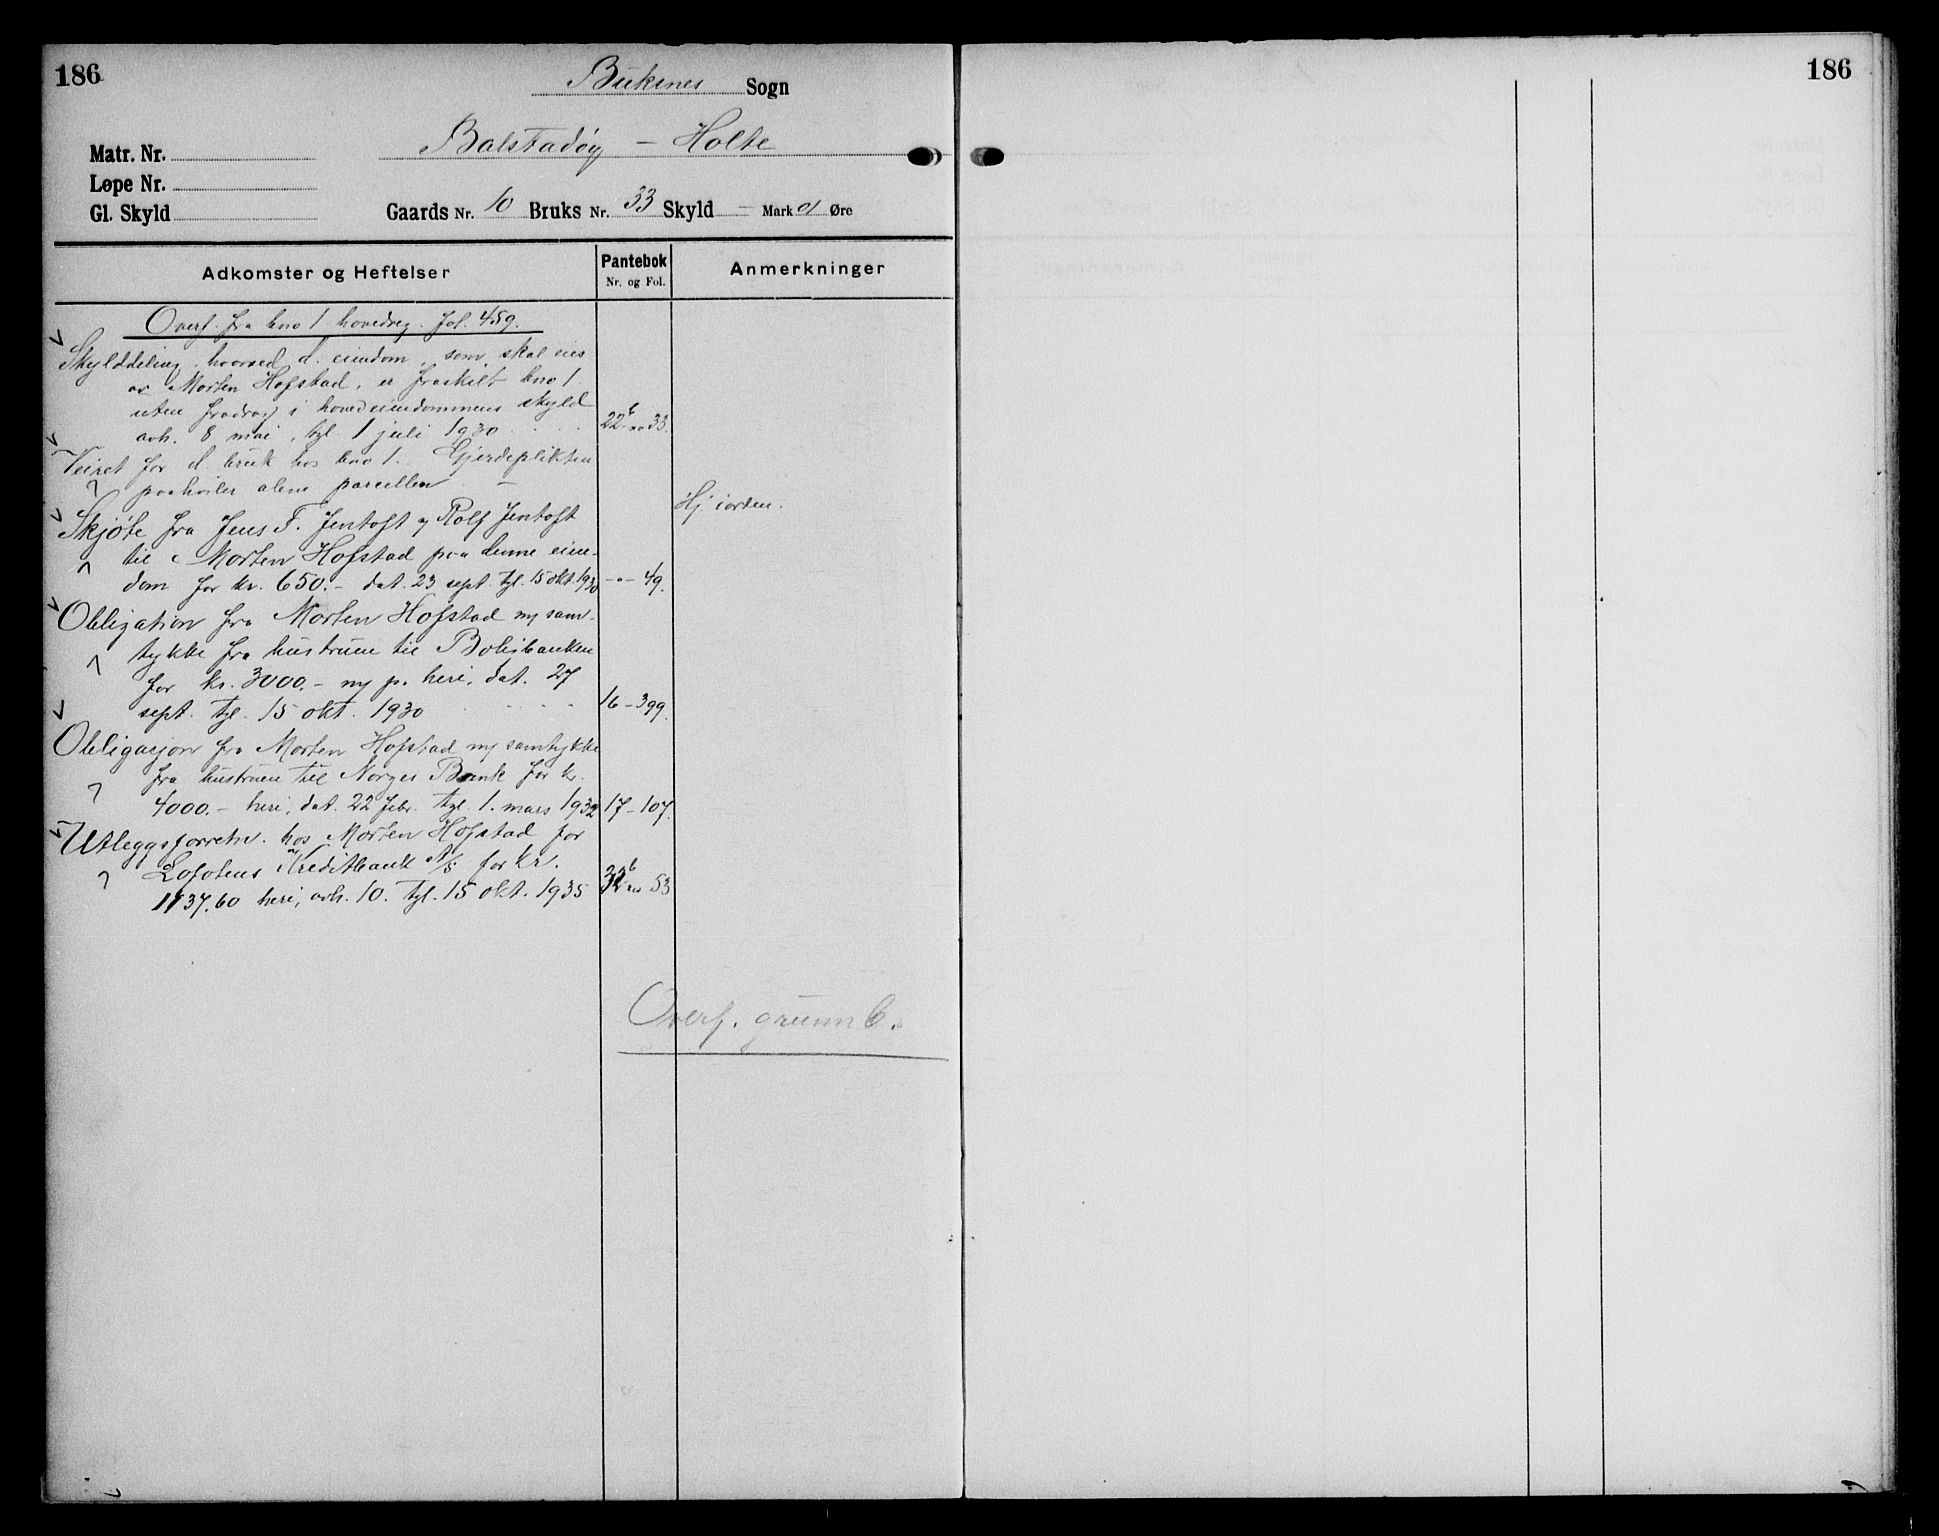 186
Buksnes Sogn
Balstadøy - Holte
Matr. Nr.
Løpe Nr.
Gl. Skyld
Gaards Nr. 10 Bruks Nr. 33 Skyld — Mark Øre
Adkomster og Heftelser
Pantebok
Nr. og Fol.
Anmerkninger
Overf. fra bno 1 hovedreg. fol. 459.
Skylddeling, hvorved d. eiendom, som skal eies
av Morten Hofstad, er fraskilt bno 1
uten fradrag i hovedeiendommens skyld
avh. 8 mai, tgl. 1 juli 1930 22b no 33.
Veiret for d. bruk hos bno 1. Gjerdeplikten
paahviler alene parcellen. —
Hj. iorden.
Skjøte fra Jens F. Jentoft og Rolf Jentoft
til Morten Hofstad paa denne eien-
dom for kr. 650.- dat. 23 sept. tgl. 15 okt. 1930 -"- 49.
Obligation fra Morten Hofstad m/ sam-
tykke fra hustruen til Boligbanken
for kr. 3000.- m/ p. heri, dat. 27
sept. tgl. 15 okt. 1930 16-399.
Obligasjon fra Morten Hofstad m/ samtykke
fra hustruen til Norges Bank for kr.
4000.- heri, dat. 22 febr. tgl. 1. mars 1932 17-107.
Utleggsforretn. hos Morten Hofstad for
Lofotens Kreditbank A/S for kr.
1137.60 heri, avh. 10. tgl. 15 okt. 1935 32b no 53
Overf. grunnb.
186